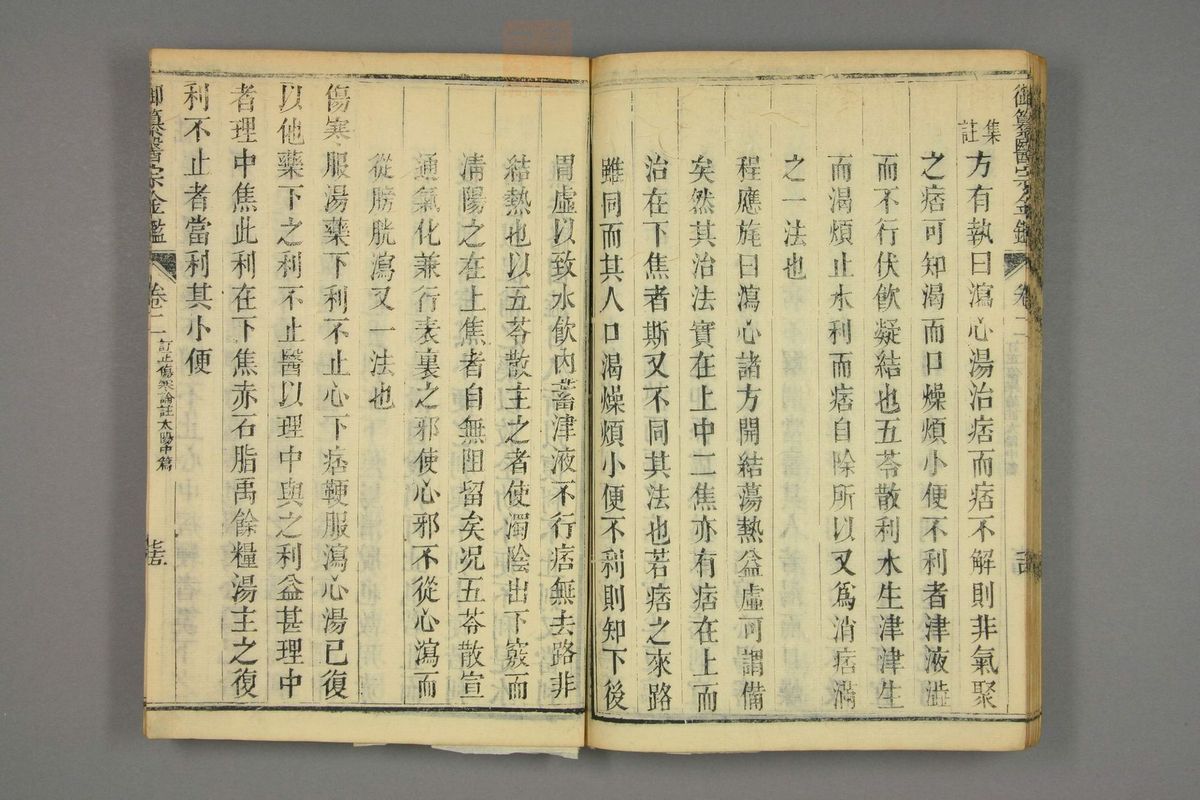 御纂醫宗金鑑 卷二
集註 方有執曰瀉心湯治痞而痞不解則非氣聚
之痞可知渴而口燥煩小便不利者津液澁
而不行伏飮凝結也五苓散利水生津津生
而渴煩止水利而痞自除所以又爲消痞滿
之一法也
程應旄曰瀉心諸方開結蕩熱益虛可謂備
矣然其治法實在上中二焦亦有痞在上而
治在下焦者斯又不同其法也若痞之來路
雖同而其人口渴燥煩小便不利則知下後
胃虛以致水飮內蓄津液不行痞無去路非
結熱也以五苓散主之者使濁陰出下竅而
淸陽之在上焦者自無阻留矣况五苓散宣
通氣化兼行表裏之邪使心邪不從心瀉而
從膀胱瀉又一法也
傷寒服湯藥下利不止心下痞鞕服瀉心湯已復
以他藥下之利不止醫以理中與之利益甚理中
者理中焦此利在下焦赤石脂禹餘糧湯主之復
利不止者當利其小便
御纂醫宗金鑑 卷二 訂正傷寒論註太陽中篇